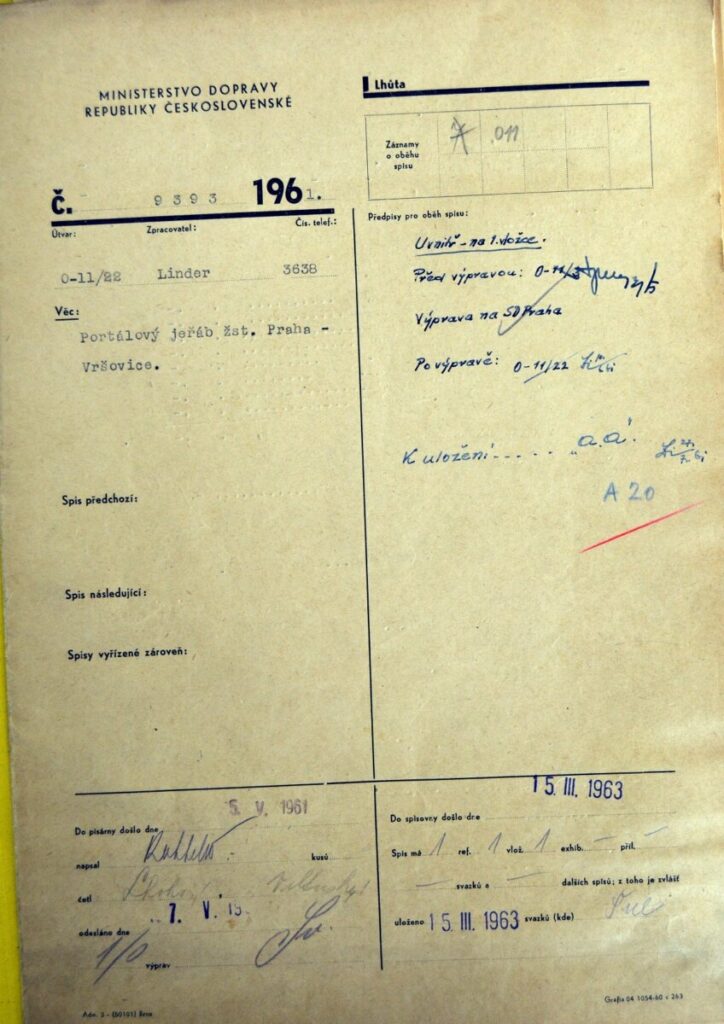 MINISTERSTVO DOPRAVY
REPUBLIKY ČESKOSLOVENSKÉ
Č. 9393 1961.
Útvar: Zpracovatel: Čís. telef.:
0-11/22 Linder 3638
Věc:
Portálový jeřáb žst. Praha -
Vršovice.
Spis předchozí:
Spis následující:
Spisy vyřízené zároveň:
Lhůta
Záznamy
o oběhu
spisu
7 011
Předpisy pro oběh spisu:
Uvnitř - na 1. vložce.
Před výpravou: 0-11/
Výprava na SD Praha
Po výpravě: 0-11/22
K uložení ..... "a.a".
A 20
5. V. 1961
Do písárny došlo dne
napsal kusů
četl
7. V. 19
odesláno dne
1/0
výprav
15. III. 1963
Do spisovny došlo dne
Spis má 1 ref. 1 vlož. 1 exhib. — příl.
— svazků a — dalších spisů; z toho je zvlášť
uloženo 15. III. 1963 svazků (kde)
Adm. 2 - (60101) Brno
Grafia 04 1054-60 c 263